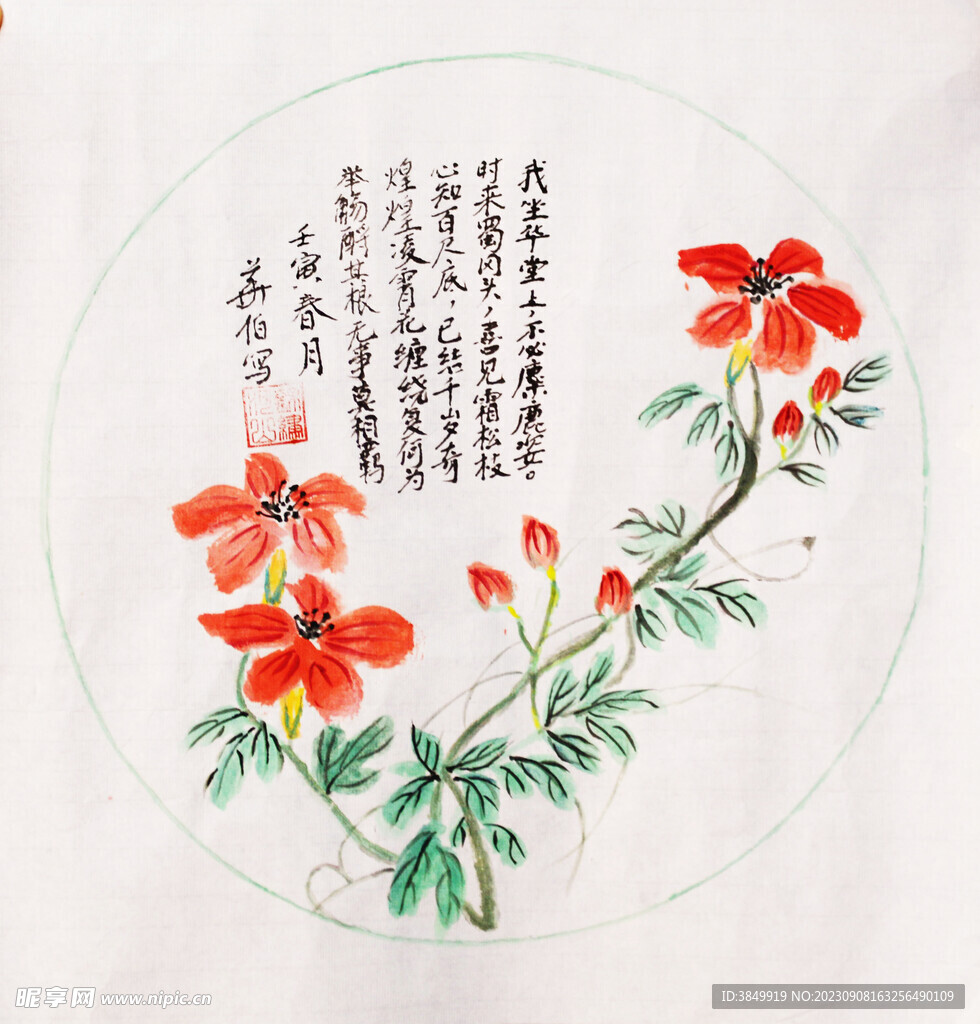 我坐华堂上，不必麋鹿姿。
时来蜀冈头，喜见霜松枝
心知百尺底，已结千岁奇
煌煌凌霄花缠绕复何为
举觞酹其根无事莫相羁
壬寅春月
华伯写
昵享网 www.nipic.cn
ID:3849919 NO:20230908163256490109